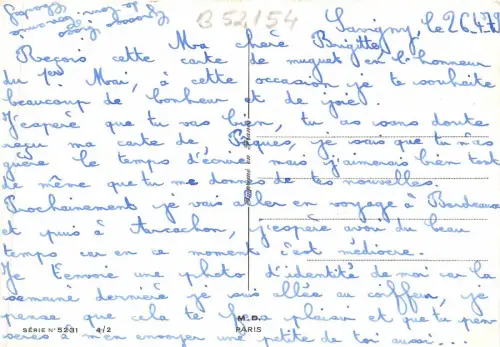 B 52/54
Savigny, le 26.4.70
Ma chère Brigitte,
Reçois cette carte de muguet en l'honneur
du 1er Mai, à cette occasion je te souhaite
beaucoup de bonheur et de joie.
J'espère que tu vas bien, tu as sans doute
reçu ma carte de Pâques, je sais que tu n'as
guère le temps d'écrire mais j'aimerais bien tout
de même que tu me donnes de tes nouvelles.
Prochainement je vais aller en voyage à Bordeaux
et puis à Arcachon, j'espère avoir du beau
temps car en ce moment c'est médiocre.
Je t'envoie une photo d'identité de moi car la
semaine dernière je suis allée au coiffeur, je
pense que cela te fera plaisir et que tu pen-
seras à m'en envoyer une petite de toi aussi...
SÉRIE N° 5231 4/2
M.D.
PARIS